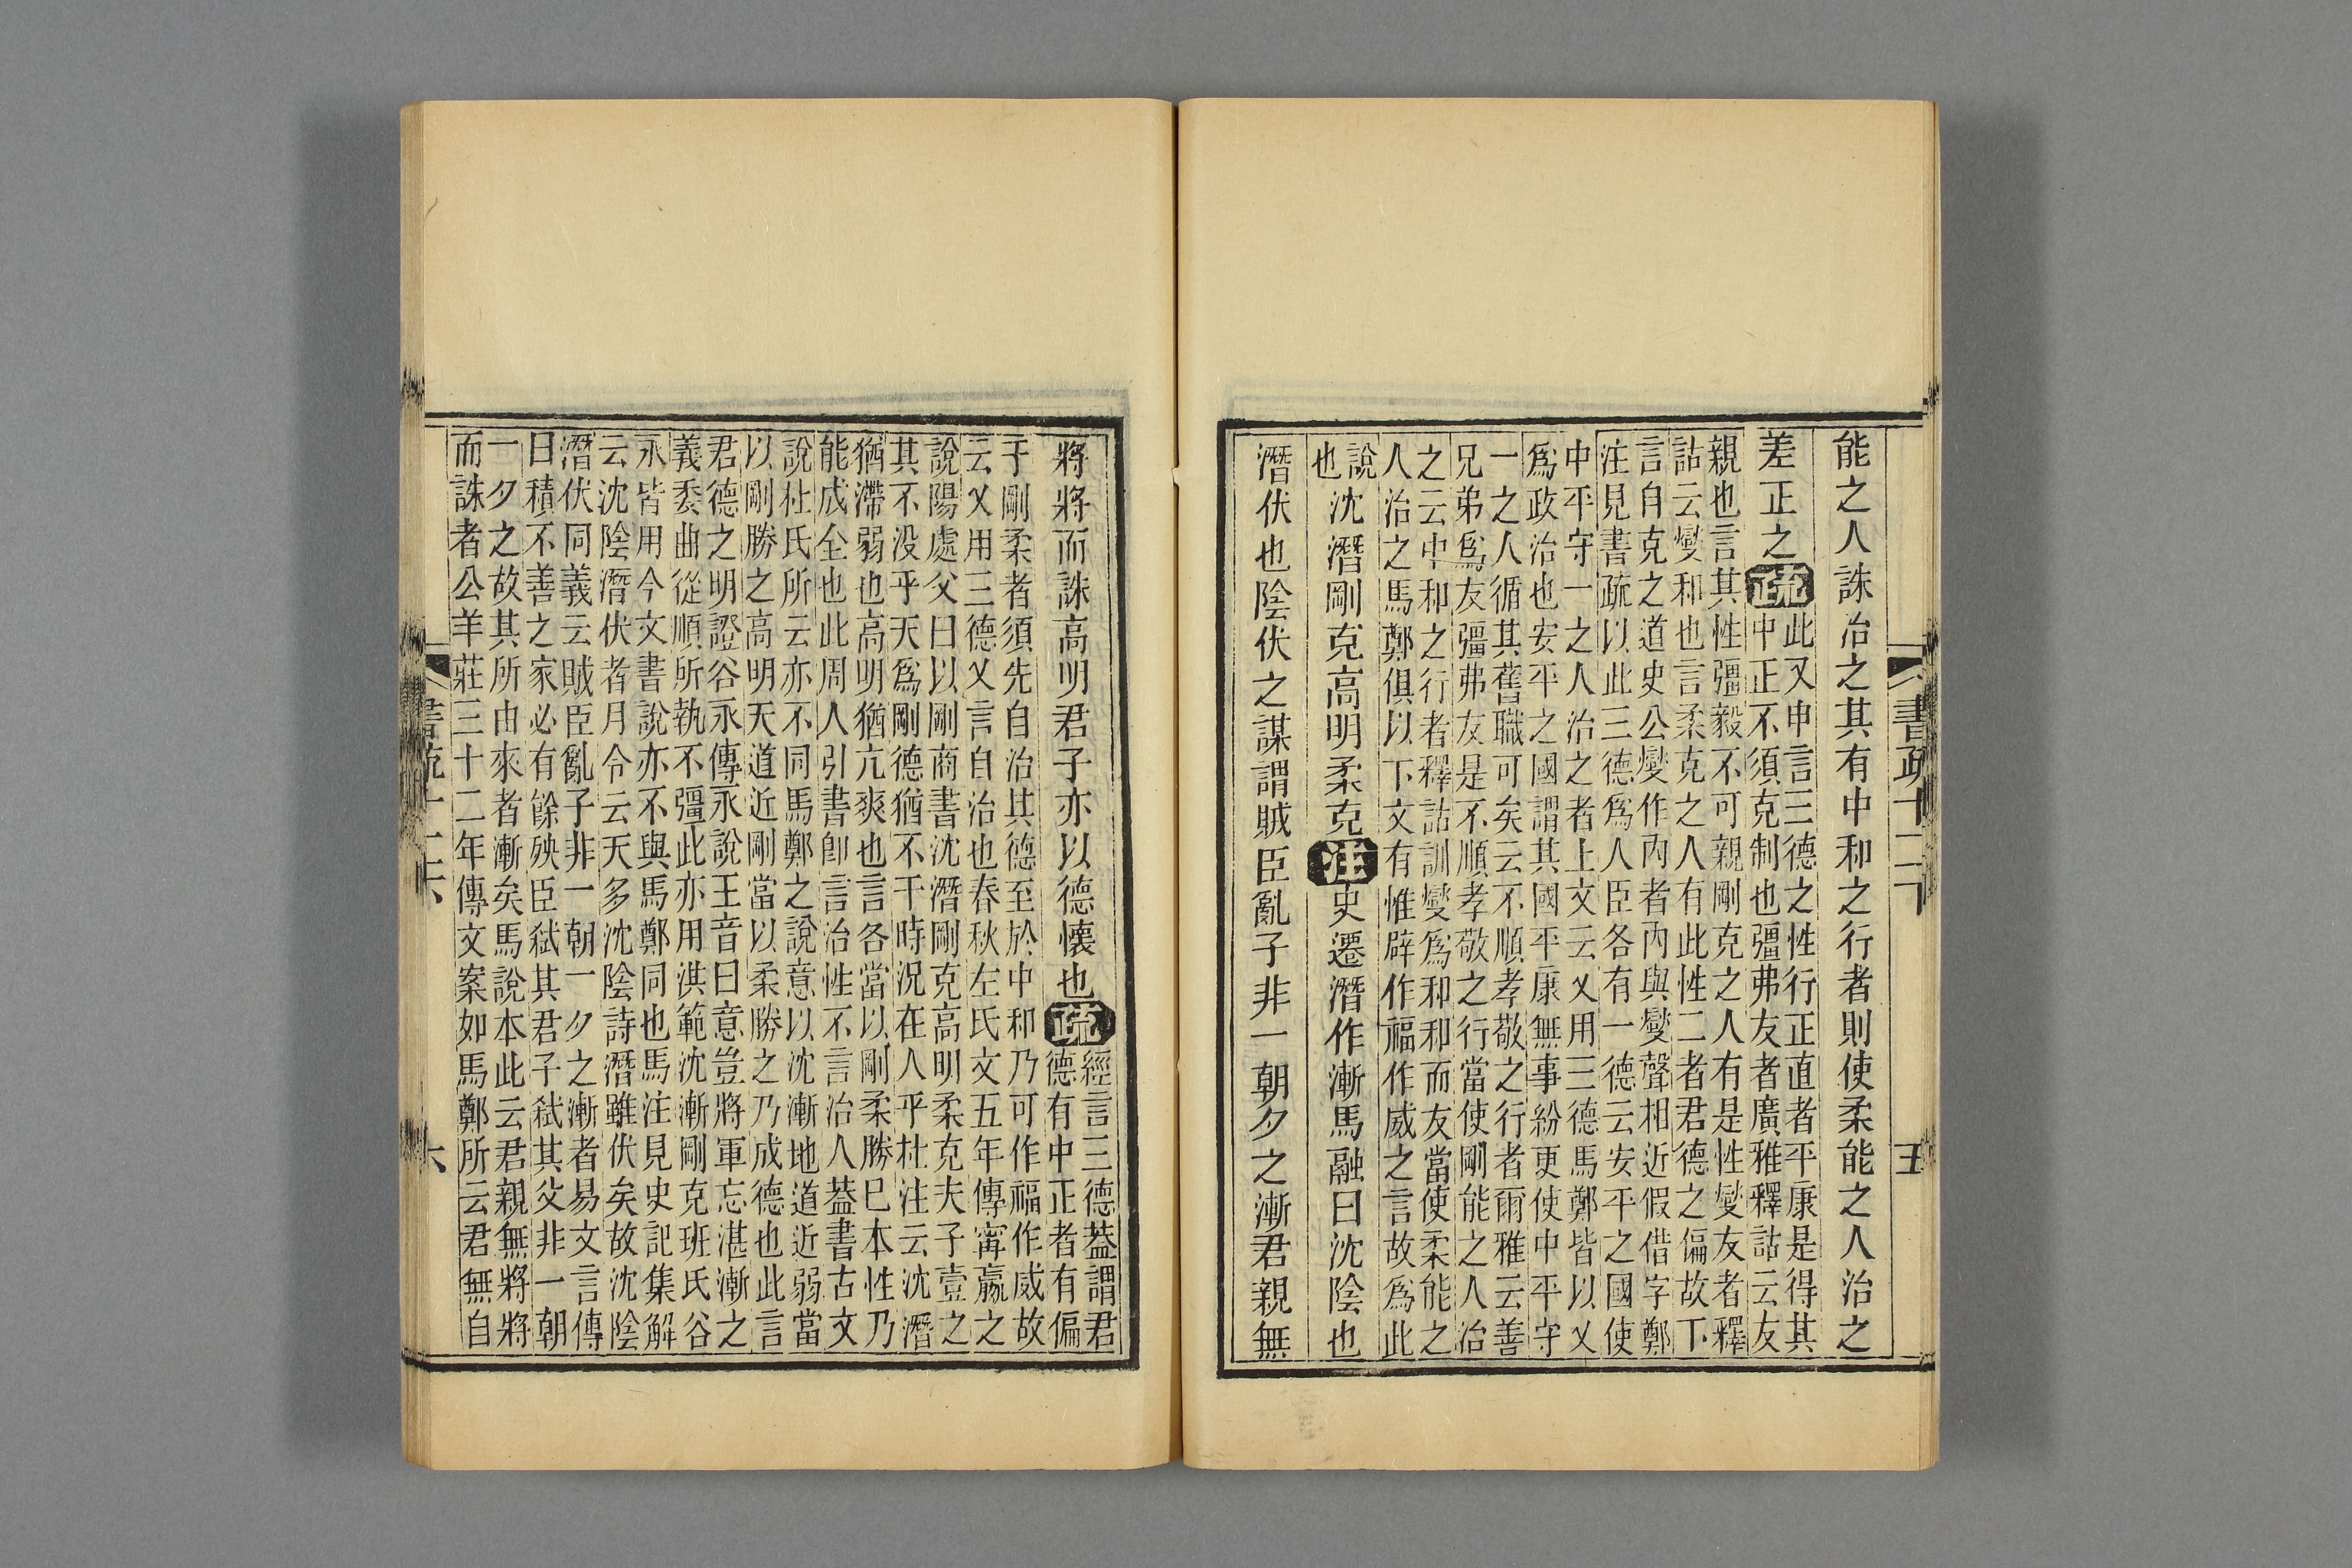 書疏十二下　五
能之人誅治之其有中和之行者則使柔能之人治之
差正之疏
此又申言三德之性行正直者平康是得其
中正不須克制也彊弗友者廣雅釋詁云友
親也言其性彊毅不可親剛克之人有是性燮友者釋
詁云燮和也言柔克之人有此性二者君德之偏故下
言自克之道史公燮作內者內與燮聲相近假借字鄭
注見書疏以此三德爲人臣各有一德云安平之國使
中平守一之人治之者上文云乂用三德馬鄭皆以乂
爲政治也安平之國謂其國平康無事紛更使中平守
一之人循其舊職可矣云不順孝敬之行者爾雅云善
兄弟爲友彊弗友是不順孝敬之行當使剛能之人治
之云中和之行者釋詁訓燮爲和和而友當使柔能之
人治之馬鄭俱以下文有惟辟作福作威之言故爲此
說
也
沈潛剛克高明柔克注史遷潛作漸馬融曰沈陰也
潛伏也陰伏之謀謂賊臣亂子非一朝夕之漸君親無
將將而誅高明君子亦以德懷也疏
經言三德葢謂君
德有中正者有偏
于剛柔者須先自治其德至於中和乃可作福作威故
云乂用三德又言自治也春秋左氏文五年傳甯嬴之
說陽處父曰以剛商書沈潛剛克高明柔克夫子壹之
其不没乎天爲剛德猶不干時況在人乎杜注云沈潛
猶滯弱也高明猶亢爽也言各當以剛柔勝已本性乃
能成全也此周人引書卽言治性不言治人葢書古文
說杜氏所云亦不同馬鄭之說意以沈漸地道近弱當
以剛勝之高明天道近剛當以柔勝之乃成德也此言
君德之明證谷永傳永說王音曰意豈將軍忘湛漸之
義委曲從順所執不彊此亦用洪範沈漸剛克班氏谷
永皆用今文書說亦不與馬鄭同也馬注見史記集解
云沈陰潛伏者月令云天多沈陰詩潛雖伏矣故沈陰
潛伏同義云賊臣亂子非一朝一夕之漸者易文言傳
曰積不善之家必有餘殃臣弑其君子弑其父非一朝
一夕之故其所由來者漸矣馬說本此云君親無將將
而誅者公羊莊三十二年傳文案如馬鄭所云君無自
六